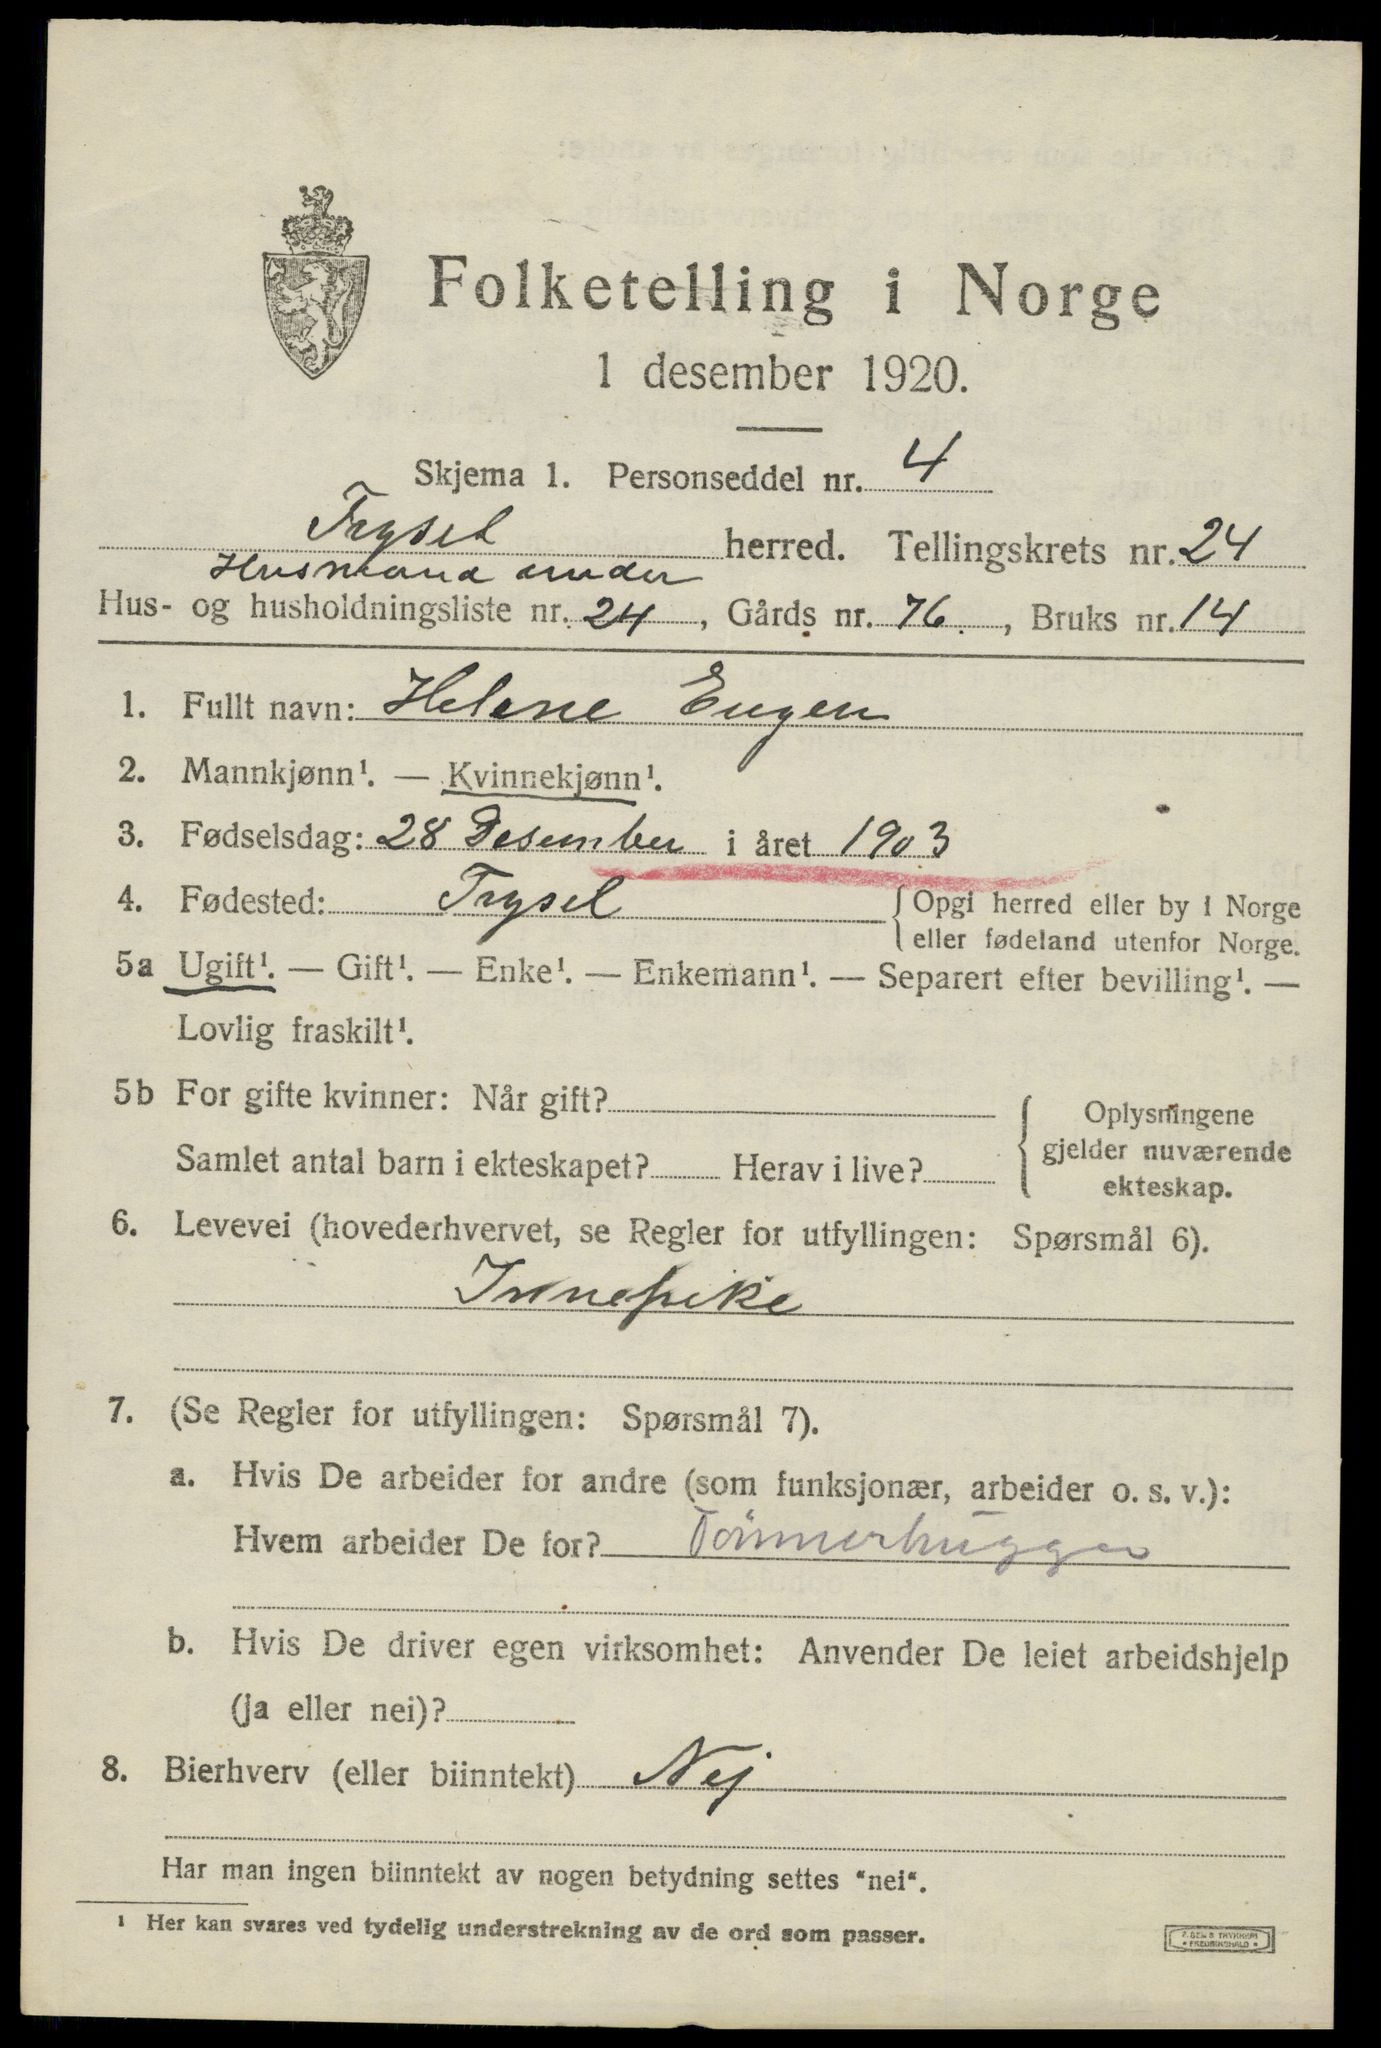 Folketelling i Norge
1 desember 1920.
Skjema 1. Personseddel nr. 4
Trysil herred. Tellingskrets nr. 24
Husmand under
Hus- og husholdningsliste nr. 24, Gårds nr. 76., Bruks nr. 14
1. Fullt navn: Helene Eugen
2. Mannkjønn¹. — Kvinnekjønn¹.
3. Fødselsdag: 28 Desember i året 1903
4. Fødested: Trysil {Opgi herred eller by i Norge
eller fødeland utenfor Norge.
5a Ugift¹. — Gift¹. — Enke¹. — Enkemann¹. — Separert efter bevilling¹. —
Lovlig fraskilt¹.
5b For gifte kvinner: Når gift?
Samlet antal barn i ekteskapet? Herav i live?
Oplysningene
gjelder nuværende
ekteskap.
6. Levevei (hovederhvervet, se Regler for utfyllingen: Spørsmål 6).
Innepike
7. (Se Regler for utfyllingen: Spørsmål 7).
a. Hvis De arbeider for andre (som funksjonær, arbeider o. s. v.):
Hvem arbeider De for? Tömmerhugger
b. Hvis De driver egen virksomhet: Anvender De leiet arbeidshjelp
(ja eller nei)?
8. Bierhverv (eller biinntekt) Nej
Har man ingen biinntekt av nogen betydning settes "nei".
¹ Her kan svares ved tydelig understrekning av de ord som passer.